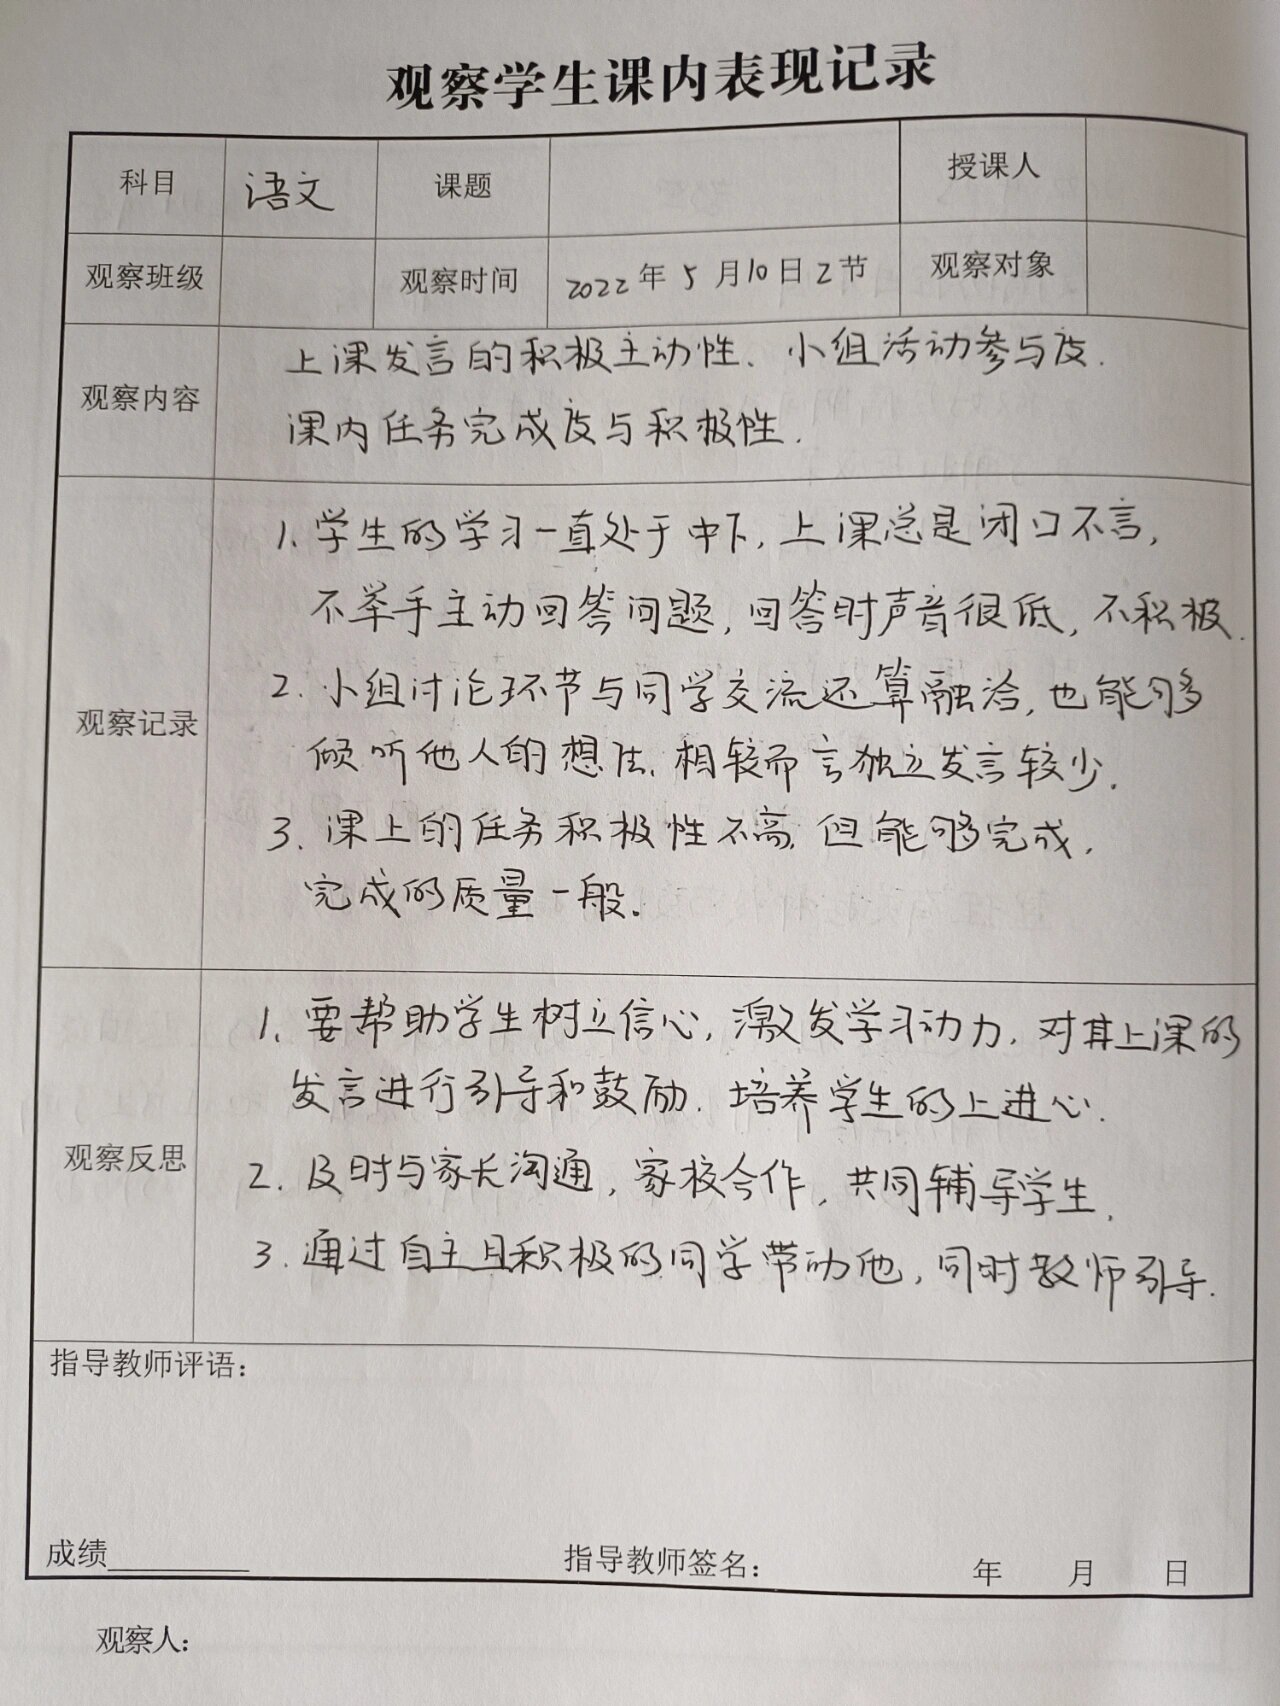 观察学生课内表现记录
科目 语文 课题 授课人
观察班级 观察时间 2022年5月10日2节 观察对象
观察内容
上课发言的积极主动性、小组活动参与度.
课内任务完成度与积极性.
观察记录
1. 学生的学习一直处于中下, 上课总是闭口不言,
不举手主动回答问题, 回答时声音很低, 不积极.
2. 小组讨论环节与同学交流还算融洽, 也能够
倾听他人的想法. 相较而言独立发言较少.
3. 课上的任务积极性不高, 但能够完成,
完成的质量一般.
观察反思
1. 要帮助学生树立信心, 激发学习动力, 对其上课的
发言进行引导和鼓励. 培养学生的上进心.
2. 及时与家长沟通, 家校合作, 共同辅导学生.
3. 通过自主且积极的同学带动他, 同时教师引导.
指导教师评语:
成绩 指导教师签名: 年 月 日
观察人: